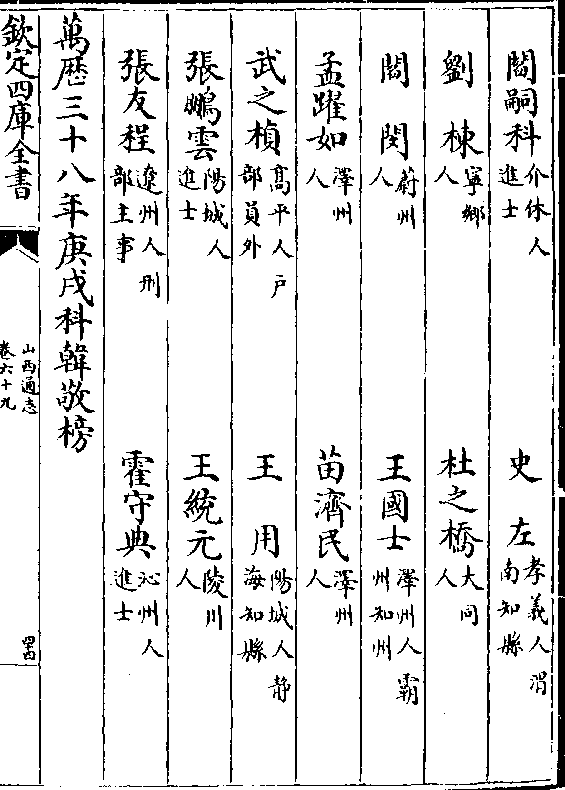 閻嗣科介休人進士　史左孝義人渭南知縣
劉棟寧鄉人　杜之橋大同人
閻閔蔚州人　王國士澤州人霸州知州
孟躍如澤州人　苗濟民澤州人
武之楨高平人戶部員外　王用陽城人靜海知縣
張鵬雲陽城人進士　王統元陵川人
張友程遼州人刑部主事　霍守典沁州人進士
萬歷三十八年庚戌科韓敬榜
欽定四庫全書　山西通志卷六十九　四